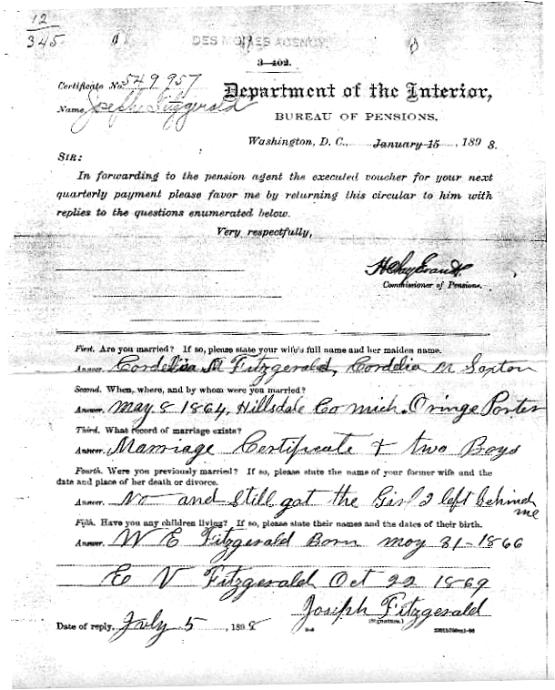 12
345
DES MOINES AGENCY
3-402.
Certificate No. 549957
Name, Joseph Fitzgerald
Department of the Interior,
BUREAU OF PENSIONS,
Washington, D. C., January 15, 1898.
SIR:
In forwarding to the pension agent the executed voucher for your next
quarterly payment please favor me by returning this circular to him with
replies to the questions enumerated below.
Very respectfully,
H Clay Evans
Commissioner of Pensions.
First. Are you married? If so, please state your wife's full name and her maiden name.
Answer. Cordelia M Fitzgerald, Cordelia M Saxton
Second. When, where, and by whom were you married?
Answer. May 8 1864, Hillsdale Co Mich. Oringe Porter
Third. What record of marriage exists?
Answer. Marriage Certificate & two Boys
Fourth. Were you previously married? If so, please state the name of your former wife and the
date and place of her death or divorce.
Answer. No and Still got the Girl I left behind
me
Fifth. Have you any children living? If so, please state their names and the dates of their birth.
Answer. W E Fitzgerald Born may 31-1866
E V Fitzgerald Oct 22 1869
Joseph Fitzgerald
(Signature.)
Date of reply, July 5, 1898